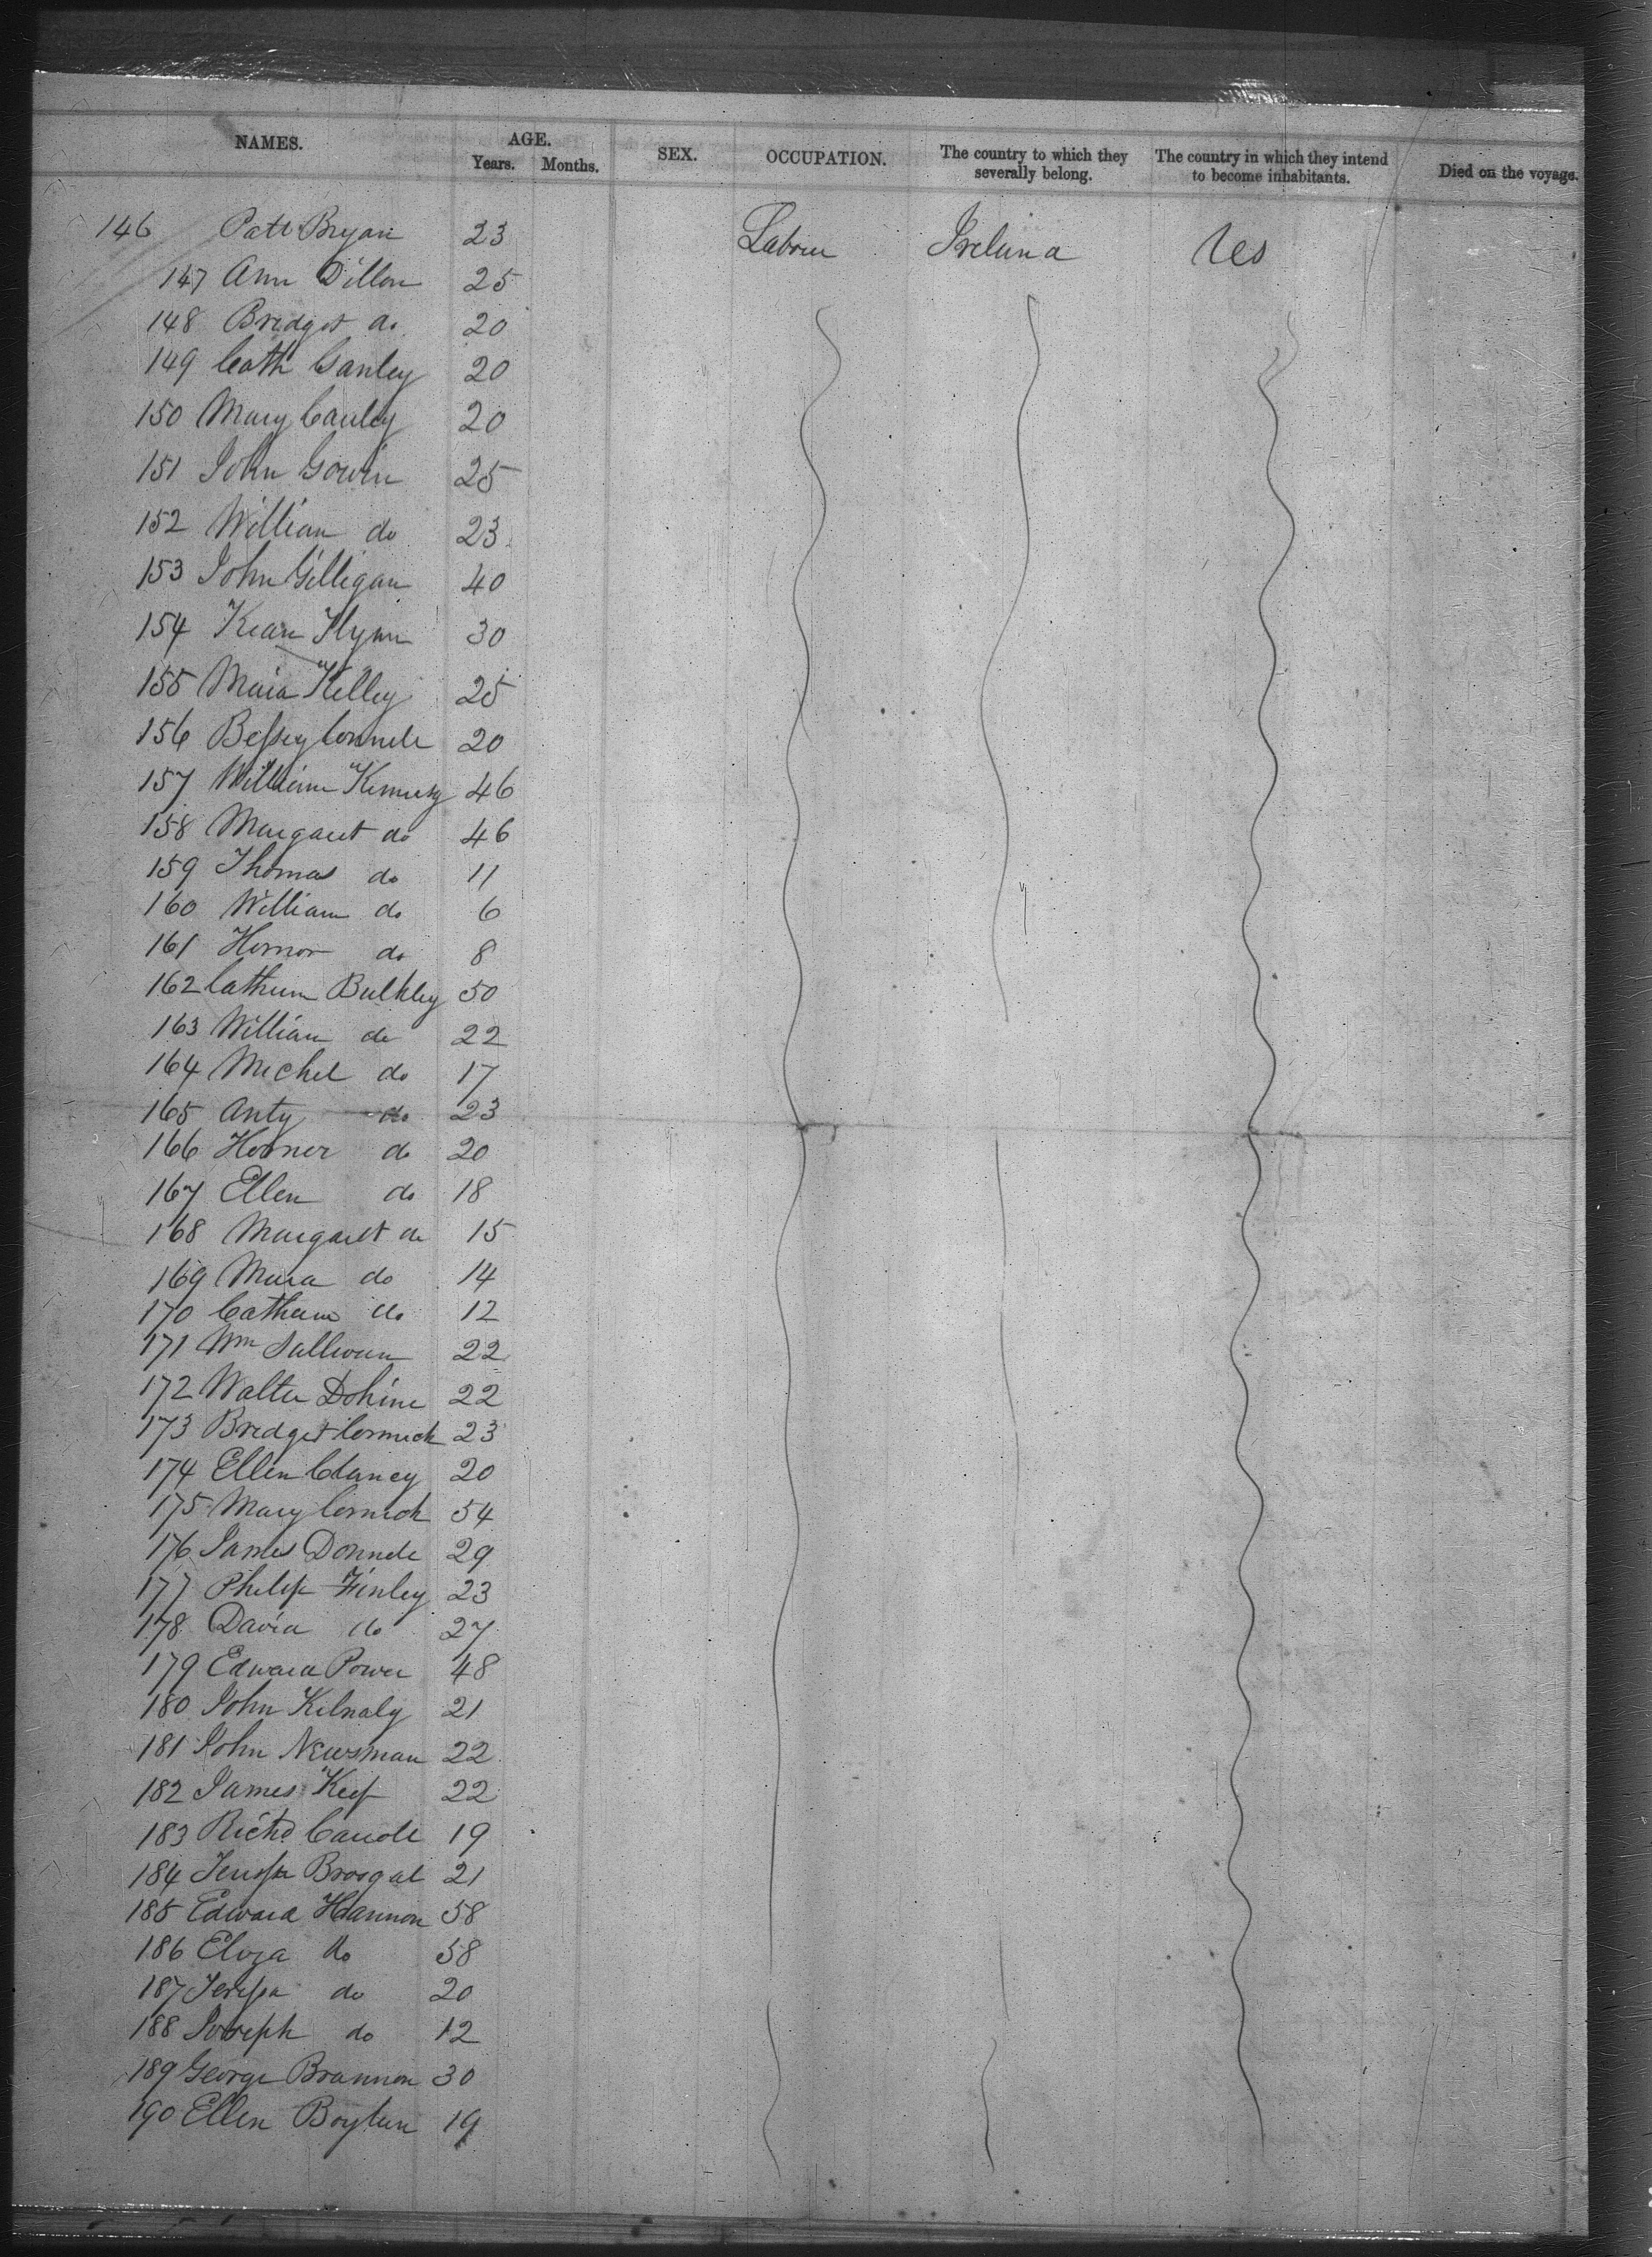 NAMES. AGE. SEX. OCCUPATION. The country to which they severally belong. The country in which they intend to become inhabitants. Died on the voyage.
Years. Months.
146 Patt Bryan 23 Labour Ireland Ues
147 Ann Dillon 25
148 Bridget do 20
149 Cath Ganley 20
150 Mary Cauley 20
151 John Gowin 25
152 William do 23
153 John Gilligan 40
154 Kean Flynn 30
155 Maria Kelley 25
156 Bessey Connele 20
157 William 46
158 Margaret do 46
159 Thomas do 11
160 William do 6
161 Hornor do 8
162 Cathrin Bulkley 50
163 William do 22
164 Michel do 17
165 Anty do 23
166 Horner do 20
167 Ellen do 18
168 Margaret do 15
169 Mara do 14
170 Cathrin do 12
171 Wm Sullivan 22
172 Walter Dohine 22
173 Bridget Cormick 23
174 Ellen Clancy 20
175 Mary Cormick 54
176 James Donnele 29
177 Philip Finley 23
178 David do 27
179 Edward Power 48
180 John Kilnaly 21
181 John Newsman 22
182 James Keef 22
183 Richd Carole 19
184 Brosgal 21
185 Edward Hannon 58
186 Eliza do 58
187 Teressa do 20
188 Joseph do 12
189 George Brannon 30
190 Ellen Boylan 19